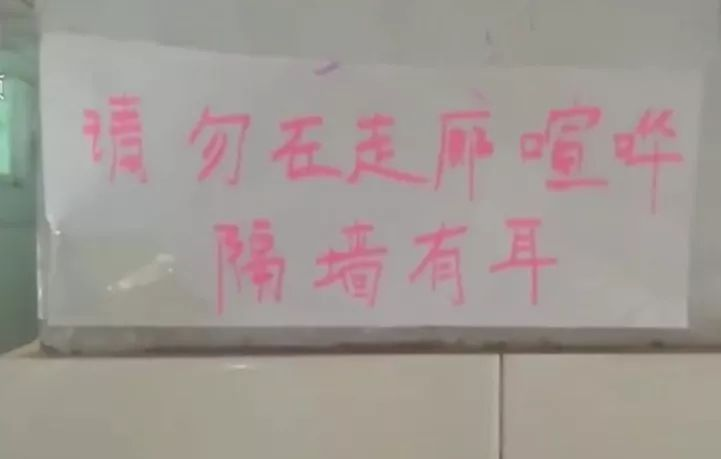 请勿在走廊喧哗
隔墙有耳